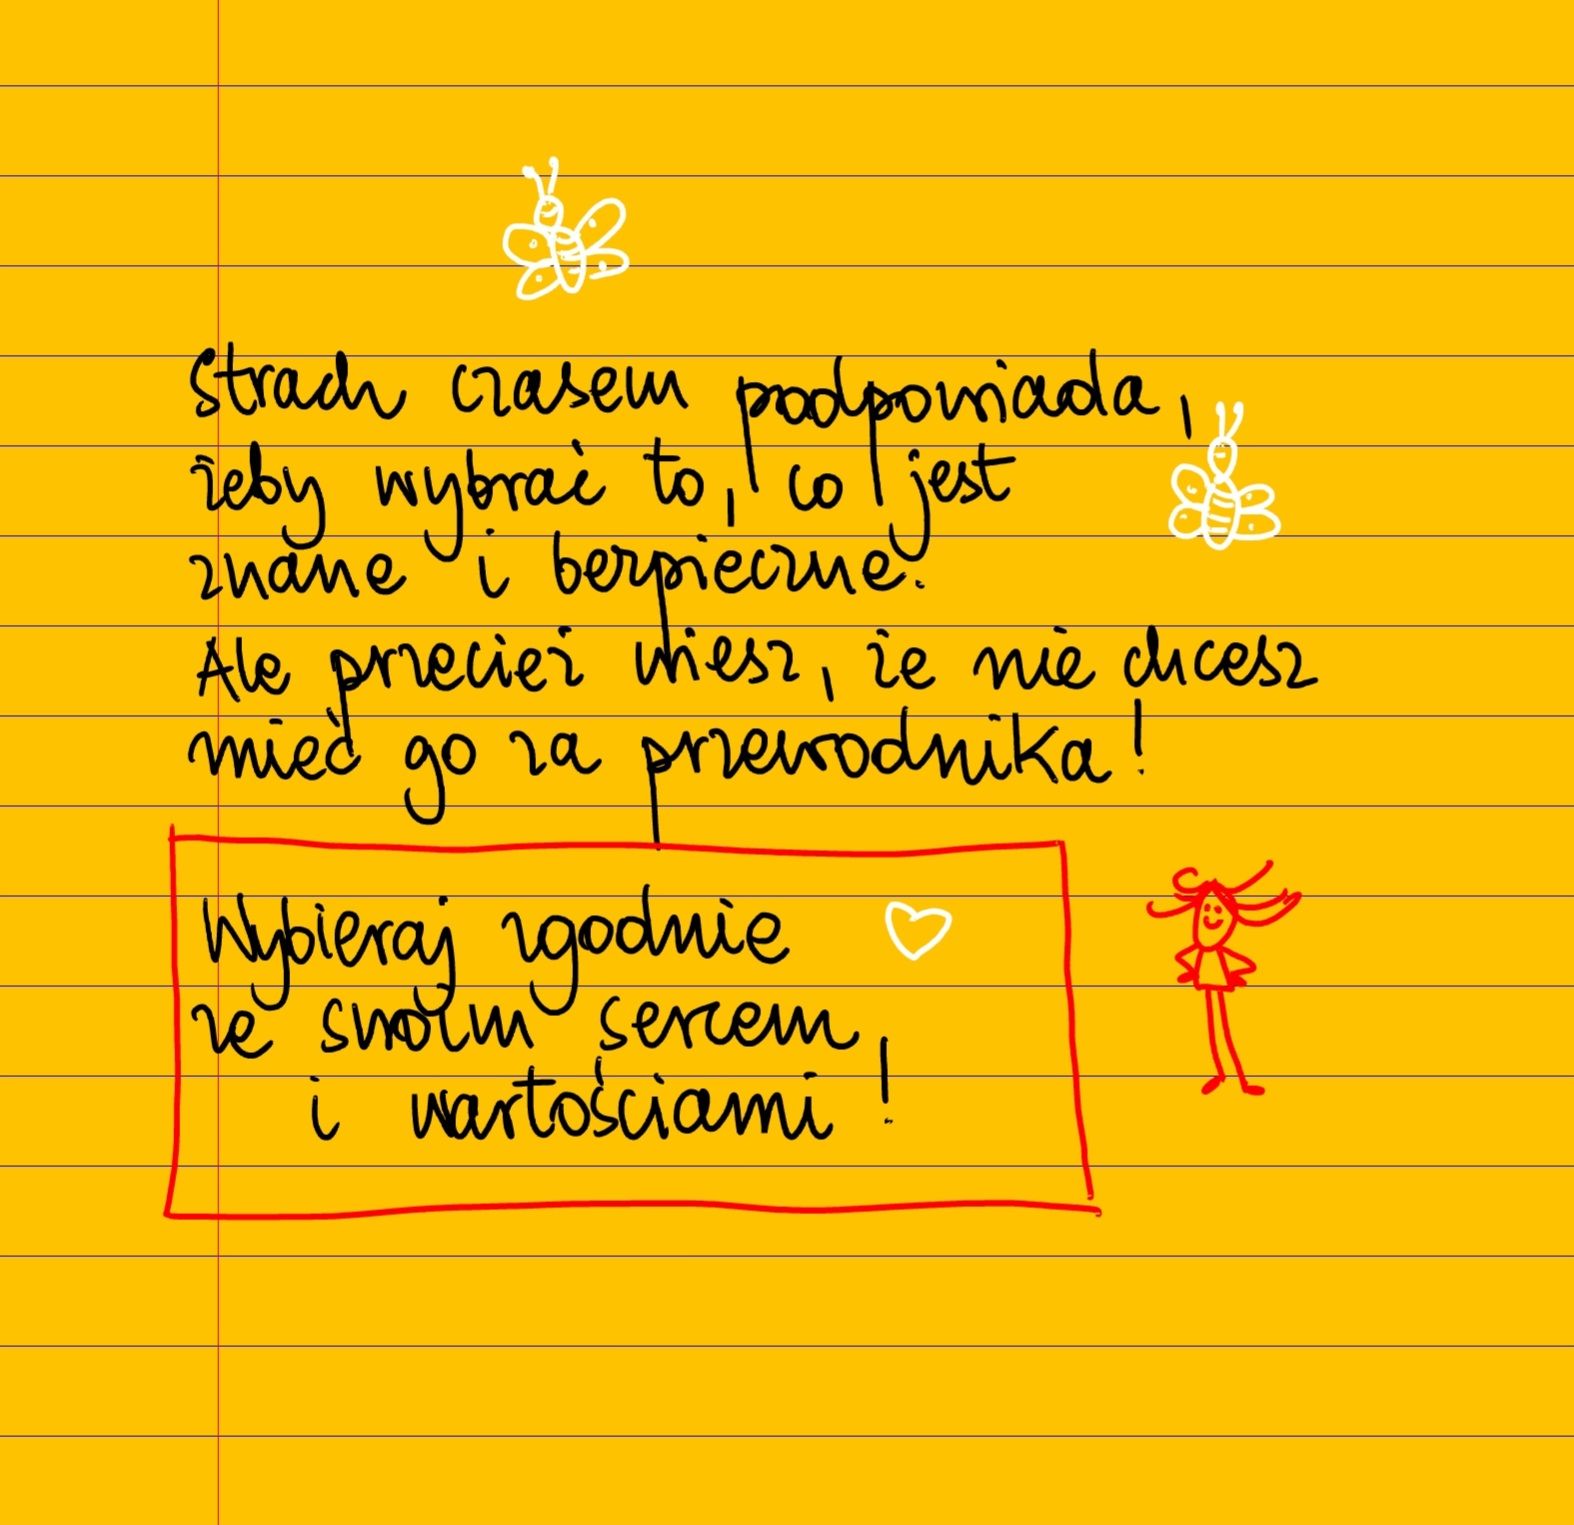 Strach czasem podpowiada,
żeby wybrać to, co jest
znane i bezpieczne.
Ale przecież wiesz, że nie chcesz
mieć go za przewodnika!
Wybieraj zgodnie
ze swoim sercem
i wartościami!